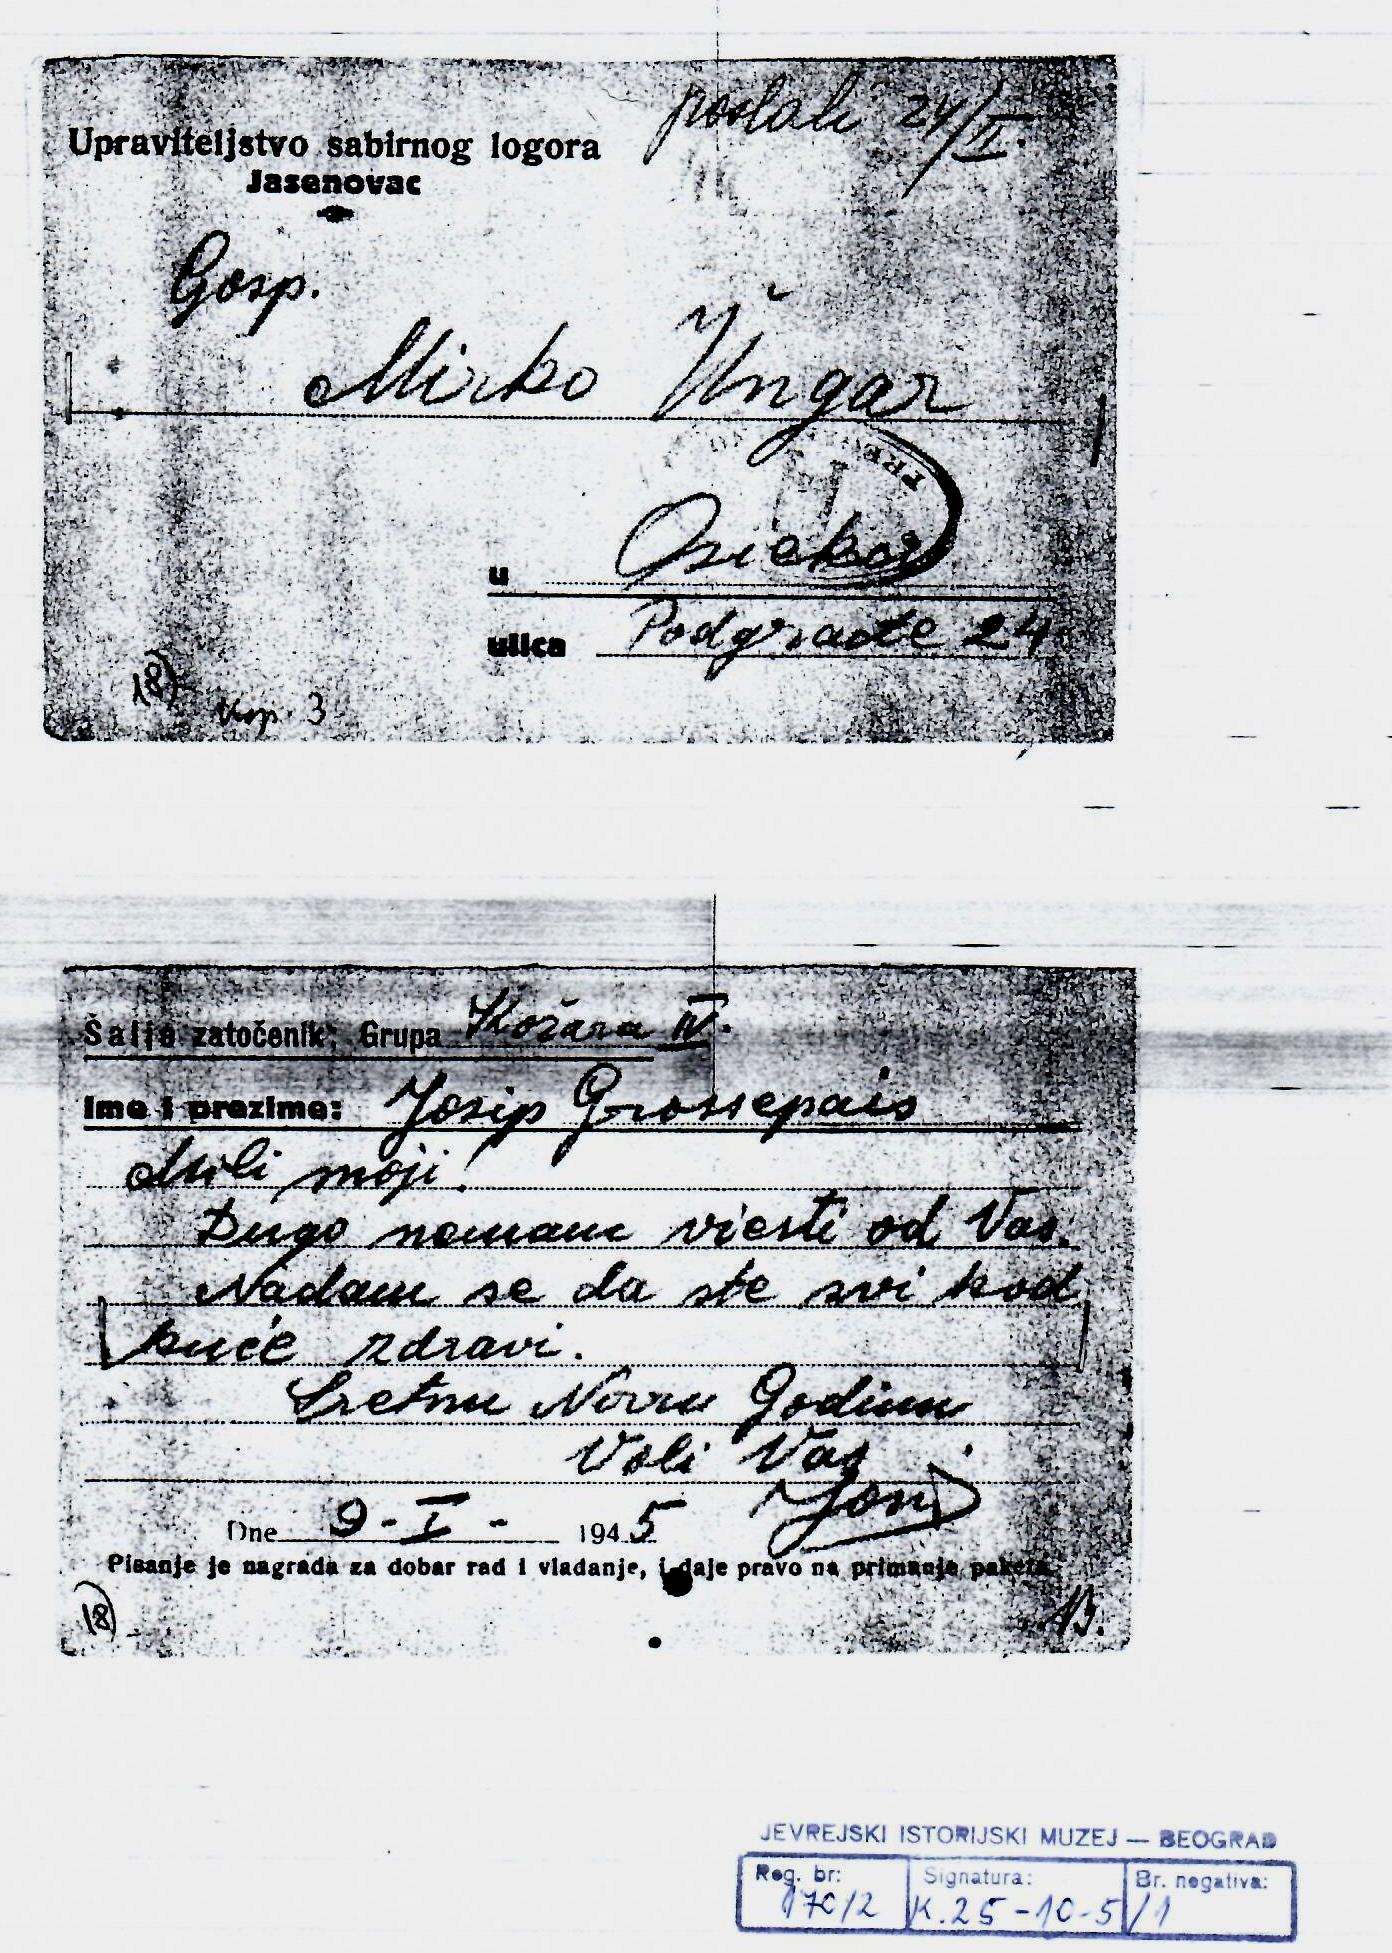 poslali 24/II.
Upraviteljstvo sabirnog logora
Jasenovac
Gosp.
Mirko Ungar
u Osieku
ulica Podgrađe 24
18)
Kop. 3
Šalje zatočenik; Grupa Kožara IV.
Ime i prezime: Josip Grossepais
Mili moji!
Dugo nemam viesti od Vas.
Nadam se da ste svi kod
kuće zdravi.
Sretnu Novu Godinu
Voli Vas
Joži
Dne 9-I- 1945
Pisanje je nagrada za dobar rad i vladanje, i daje pravo na primanje paketa.
18)
13.
JEVREJSKI ISTORIJSKI MUZEJ — BEOGRAD
Reg. br: Signatura: Br. negativa:
170/2 K.25-10-5/1